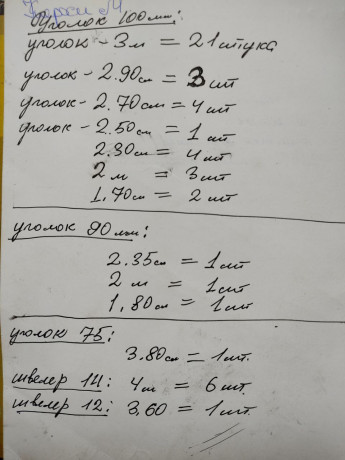 Уголок 100мм:
уголок - 3м = 21штука
уголок - 2.90см = 3шт
уголок - 2.70см = 4шт
уголок - 2.50см = 1шт
2.30см = 4шт
2м = 3шт
1.70см = 2шт
уголок 90мм:
2.35см = 1шт
2м = 1шт
1,80см = 1шт
уголок 75:
3.80см = 1шт.
швелер 14: 4м = 6шт.
швелер 12: 3,60 = 1шт.